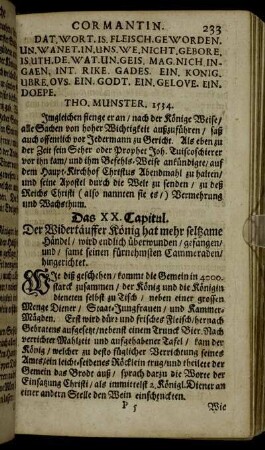 CORMANTIN. 233
DAT. WORT. IS. FLEISCH. GEWORDEN.
UN. WANET. IN. UNS. WE. NICHT. GEBORE.
IS. UTH. DE. WAT. UN. GEIS. MAG. NICH IN-
GAEN. INT. RIKE. GADES. EIN. KONIG.
UBRE. OVS. EIN. GODT. EIN. GELOVE. EIN.
DOEPE.
THO. MUNSTER. 1534.
Imgleichen fienge er an / nach der Könige Weise /
alle Sachen von hoher Wichtigkeit außzuführen / saß
auch offentlich vor Jedermann zu Gericht. Als eben zu
der Zeit sein Seher oder Prophet Joh. Tuiscoschierer
vor ihn kam / und ihm Befehls-Weise ankündigte / auf
dem Haupt-Kirchhof Christus Abendmahl zu halten /
und seine Apostel durch die Welt zu senden / zu deß
Reichs Christi (also nannten sie es /) Vermehrung
und Wachsthum.
Das XX. Capitul.
Der Widertäuffer König hat mehr seltzame
Händel / wird endlich überwunden / gefangen /
und / samt seinen fürnehmsten Cammeraden /
hingerichtet.
Wie diß geschehen / komme die Gemein in 4000.
starck zusammen / der König und die Königin
dieneten selbst zu Tisch / neben einer grossen
Menge Diener / Staats-Jungfrauen / und Kammer-
Mägden. Erst wird dürr und frisches Fleisch / hernach
Gebratens aufgesetzt / nebenst einem Trunck Bier. Nach
verrichter Mahlzeit und aufgehabener Tafel / kam der
König / welcher zu desto füglicher Verrichtung seines
Amts / ein leicht-seidenes Röcklein trug / und theilete der
Gemein das Brodt auß / sprach darzu die Worte der
Einsatzung Christi / als immittelst 2. Königl. Diener an
einer andern Stelle den Wein einschenckten.
P 5 Wie